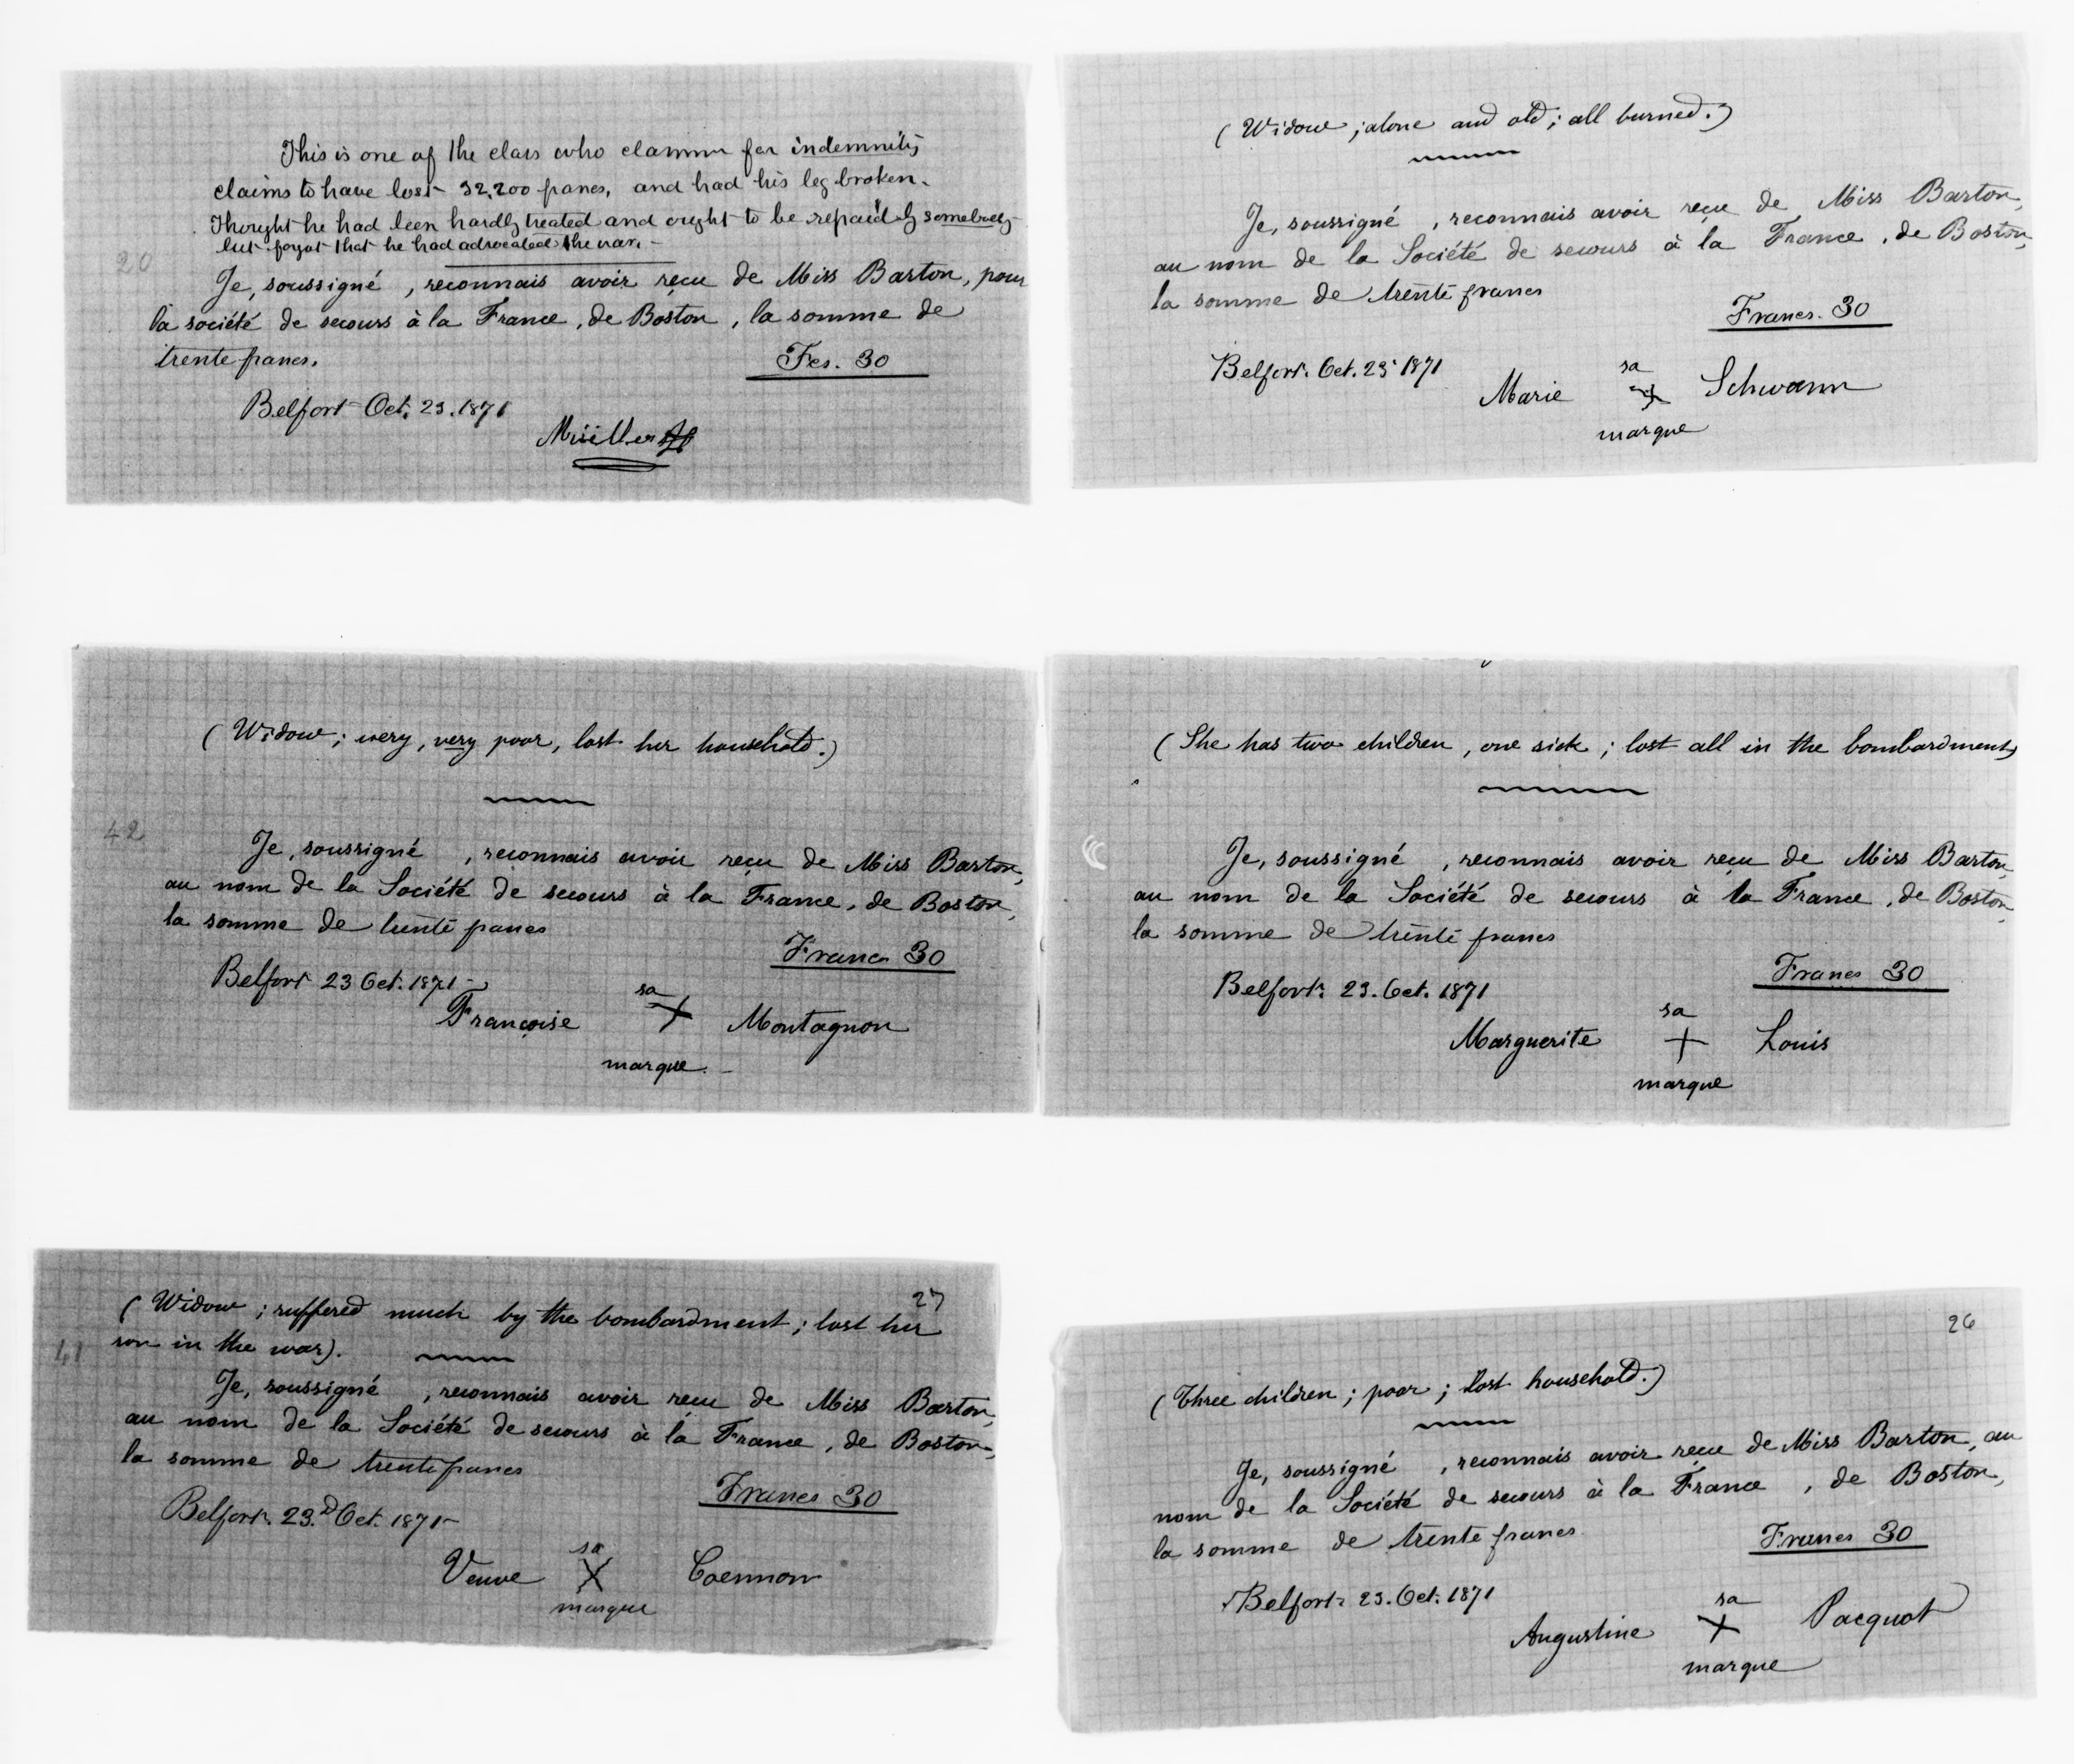 This is one of the class who clamm for indemnity
claims to have lost 32,200 francs, and had his leg broken.
Thought he had been hardly treated and ought to be repaid by somebody
but forgot that he had advocated the war. -
20
Je, soussigné, reconnais avoir reçu de Miss Barton, pour
la société de secours à la France, de Boston, la somme de
trente francs.
Fcs. 30
Belfort Oct. 23. 1871
Müller
(Widow; alone and old; all burned.)
Je, soussigné, reconnais avoir reçu de Miss Barton,
au nom de la Société de secours à la France, de Boston,
la somme de trente francs
Francs. 30
Belfort. Oct. 23 1871
sa
Marie x Schwann
marque
(Widow; very, very poor, lost her household.)
42
Je, soussigné, reconnais avoir reçu de Miss Barton,
au nom de la Société de secours à la France, de Boston,
la somme de trente francs
Francs 30
Belfort 23 Oct. 1871
sa
Françoise x Montagnon
marque.
(She has two children, one sick; lost all in the bombardment)
Je, soussigné, reconnais avoir reçu de Miss Barton,
au nom de la Société de secours à la France, de Boston,
la somme de trente francs
Francs 30
Belfort. 23. Oct. 1871
sa
Marguerite + Louis
marque
27
(Widow; suffered much by the bombardment; lost her
son in the war).
41
Je, soussigné, reconnais avoir reçu de Miss Barton,
au nom de la Société de secours à la France, de Boston,
la somme de trente francs
Francs 30
Belfort. 23.d Oct. 1871
sa
Veuve x
marque
26
(Three children; poor; lost household.)
Je, soussigné, reconnais avoir reçu de Miss Barton, au
nom de la Société de secours à la France, de Boston,
la somme de trente francs
Francs 30
Belfort. 23. Oct. 1871
sa
Augustine x Pacquot
marque